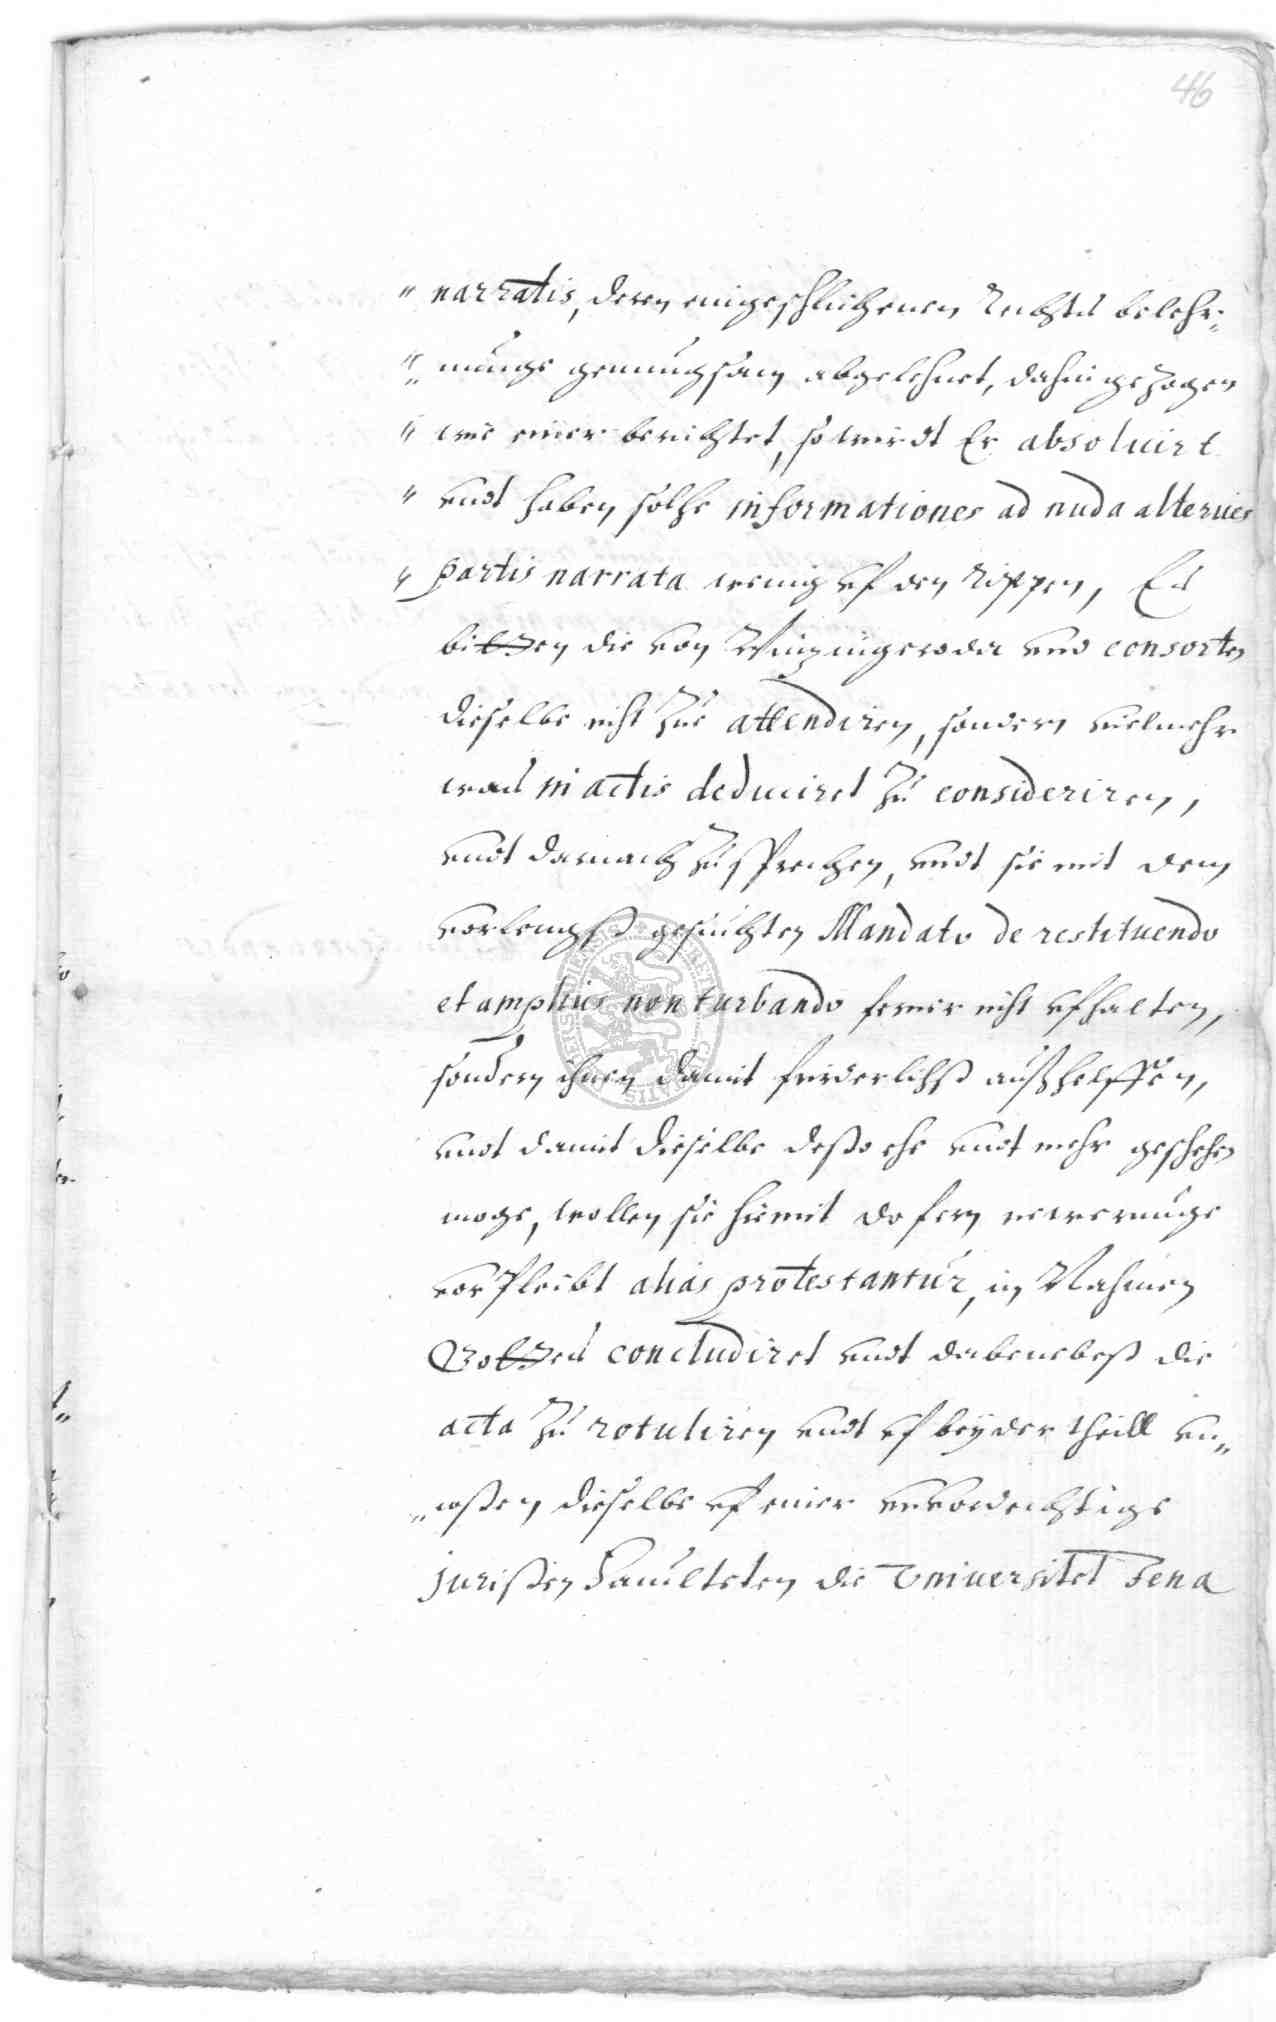 46
" narratis, deren eingeschlichenen Rechts belehr„
„ nunge genungsam abgelehnet, dahin gezogen
" wie einer berichtet, so wirdt Er absoluirt
" undt haben solche informationes ad nuda alterius
" partis narrata wenig uf den Rippen, Es
bitten die von Winzingeroda und consorten
dieselbe nicht zue attendiren, sondern vielmehr
was in actis deduciret zu consideriren,
undt darnach zu sprechen, undt sie mit dem
vorlengst gesuchten Mandato de restituendo
et amplius non turbando ferner nicht ufhalten,
sondern ihnen damit furderlichst außhelffen,
undt damit dieselbe desto ehe undt mehr geschehen
moge, wollen sie hiemit dofern newerunge
vorpleibt alias protestantur, in Nahmen
Gottes concludiret undt dabenebest die
acta zu rotuliren undt uf beyder theill un„
„costen dieselbe uf einer unvordechtige
juristen Faculteten die Universitet Jena